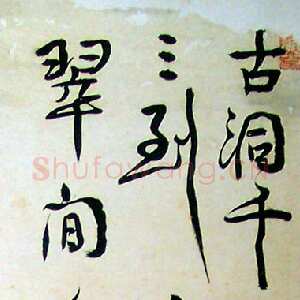 古洞千
三到
翠间
Shufawang.cn